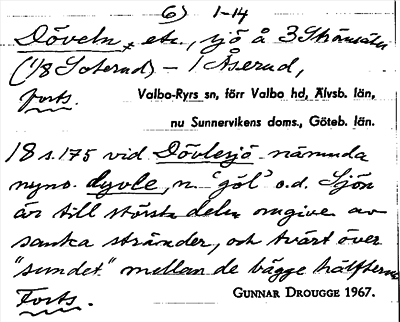 6) 1-14
Döveln, etc., sjö å 3 Strömsäter
(1/8 Soterud) – 1 Åserud,
forts.
Valbo-Ryrs sn, förr Valbo hd, Älvsb. län,
nu Sunnervikens doms., Göteb. län.
18 s. 175 vid Dövlesjö nämnda
nyno. dyvle, n. 'göl' o.d. Sjön
är till största delen omgiven av
sanka stränder, och tvärt över
"sundet" mellan de bägge hälfterna
Forts.
GUNNAR DROUGGE 1967.